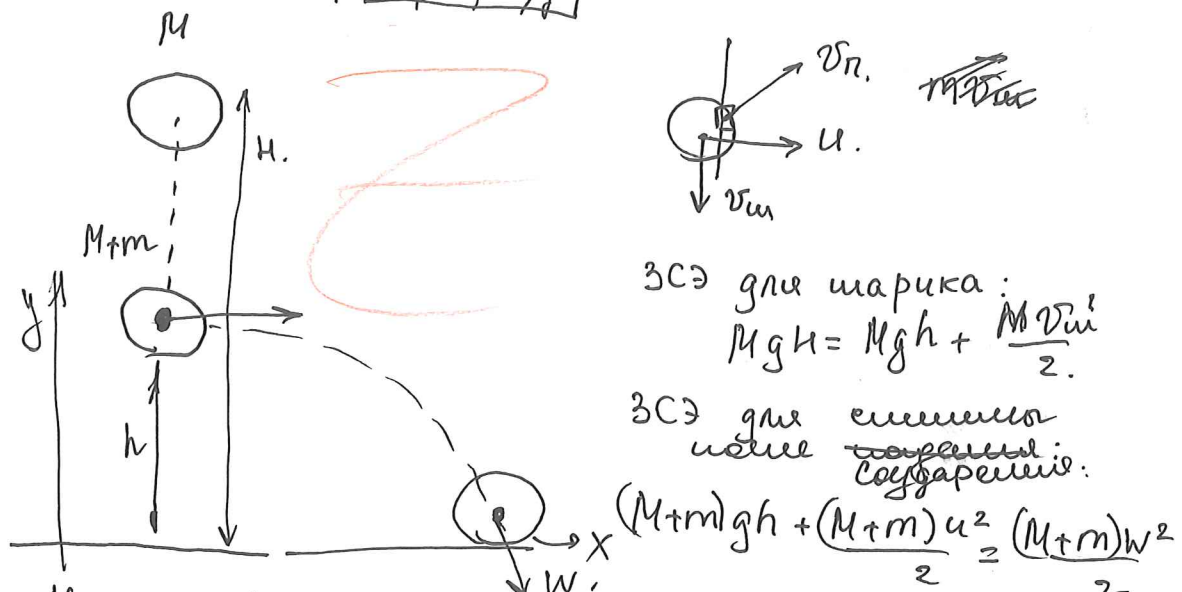 M
H.
M+m
y
h
X
W.
vп.
u.
vш
ЗСЭ для шарика:
MgH = Mgh + Mvш²/2.
ЗСЭ для системы
после соударения:
(M+m)gh + (M+m)u²/2 = (M+m)w²/2